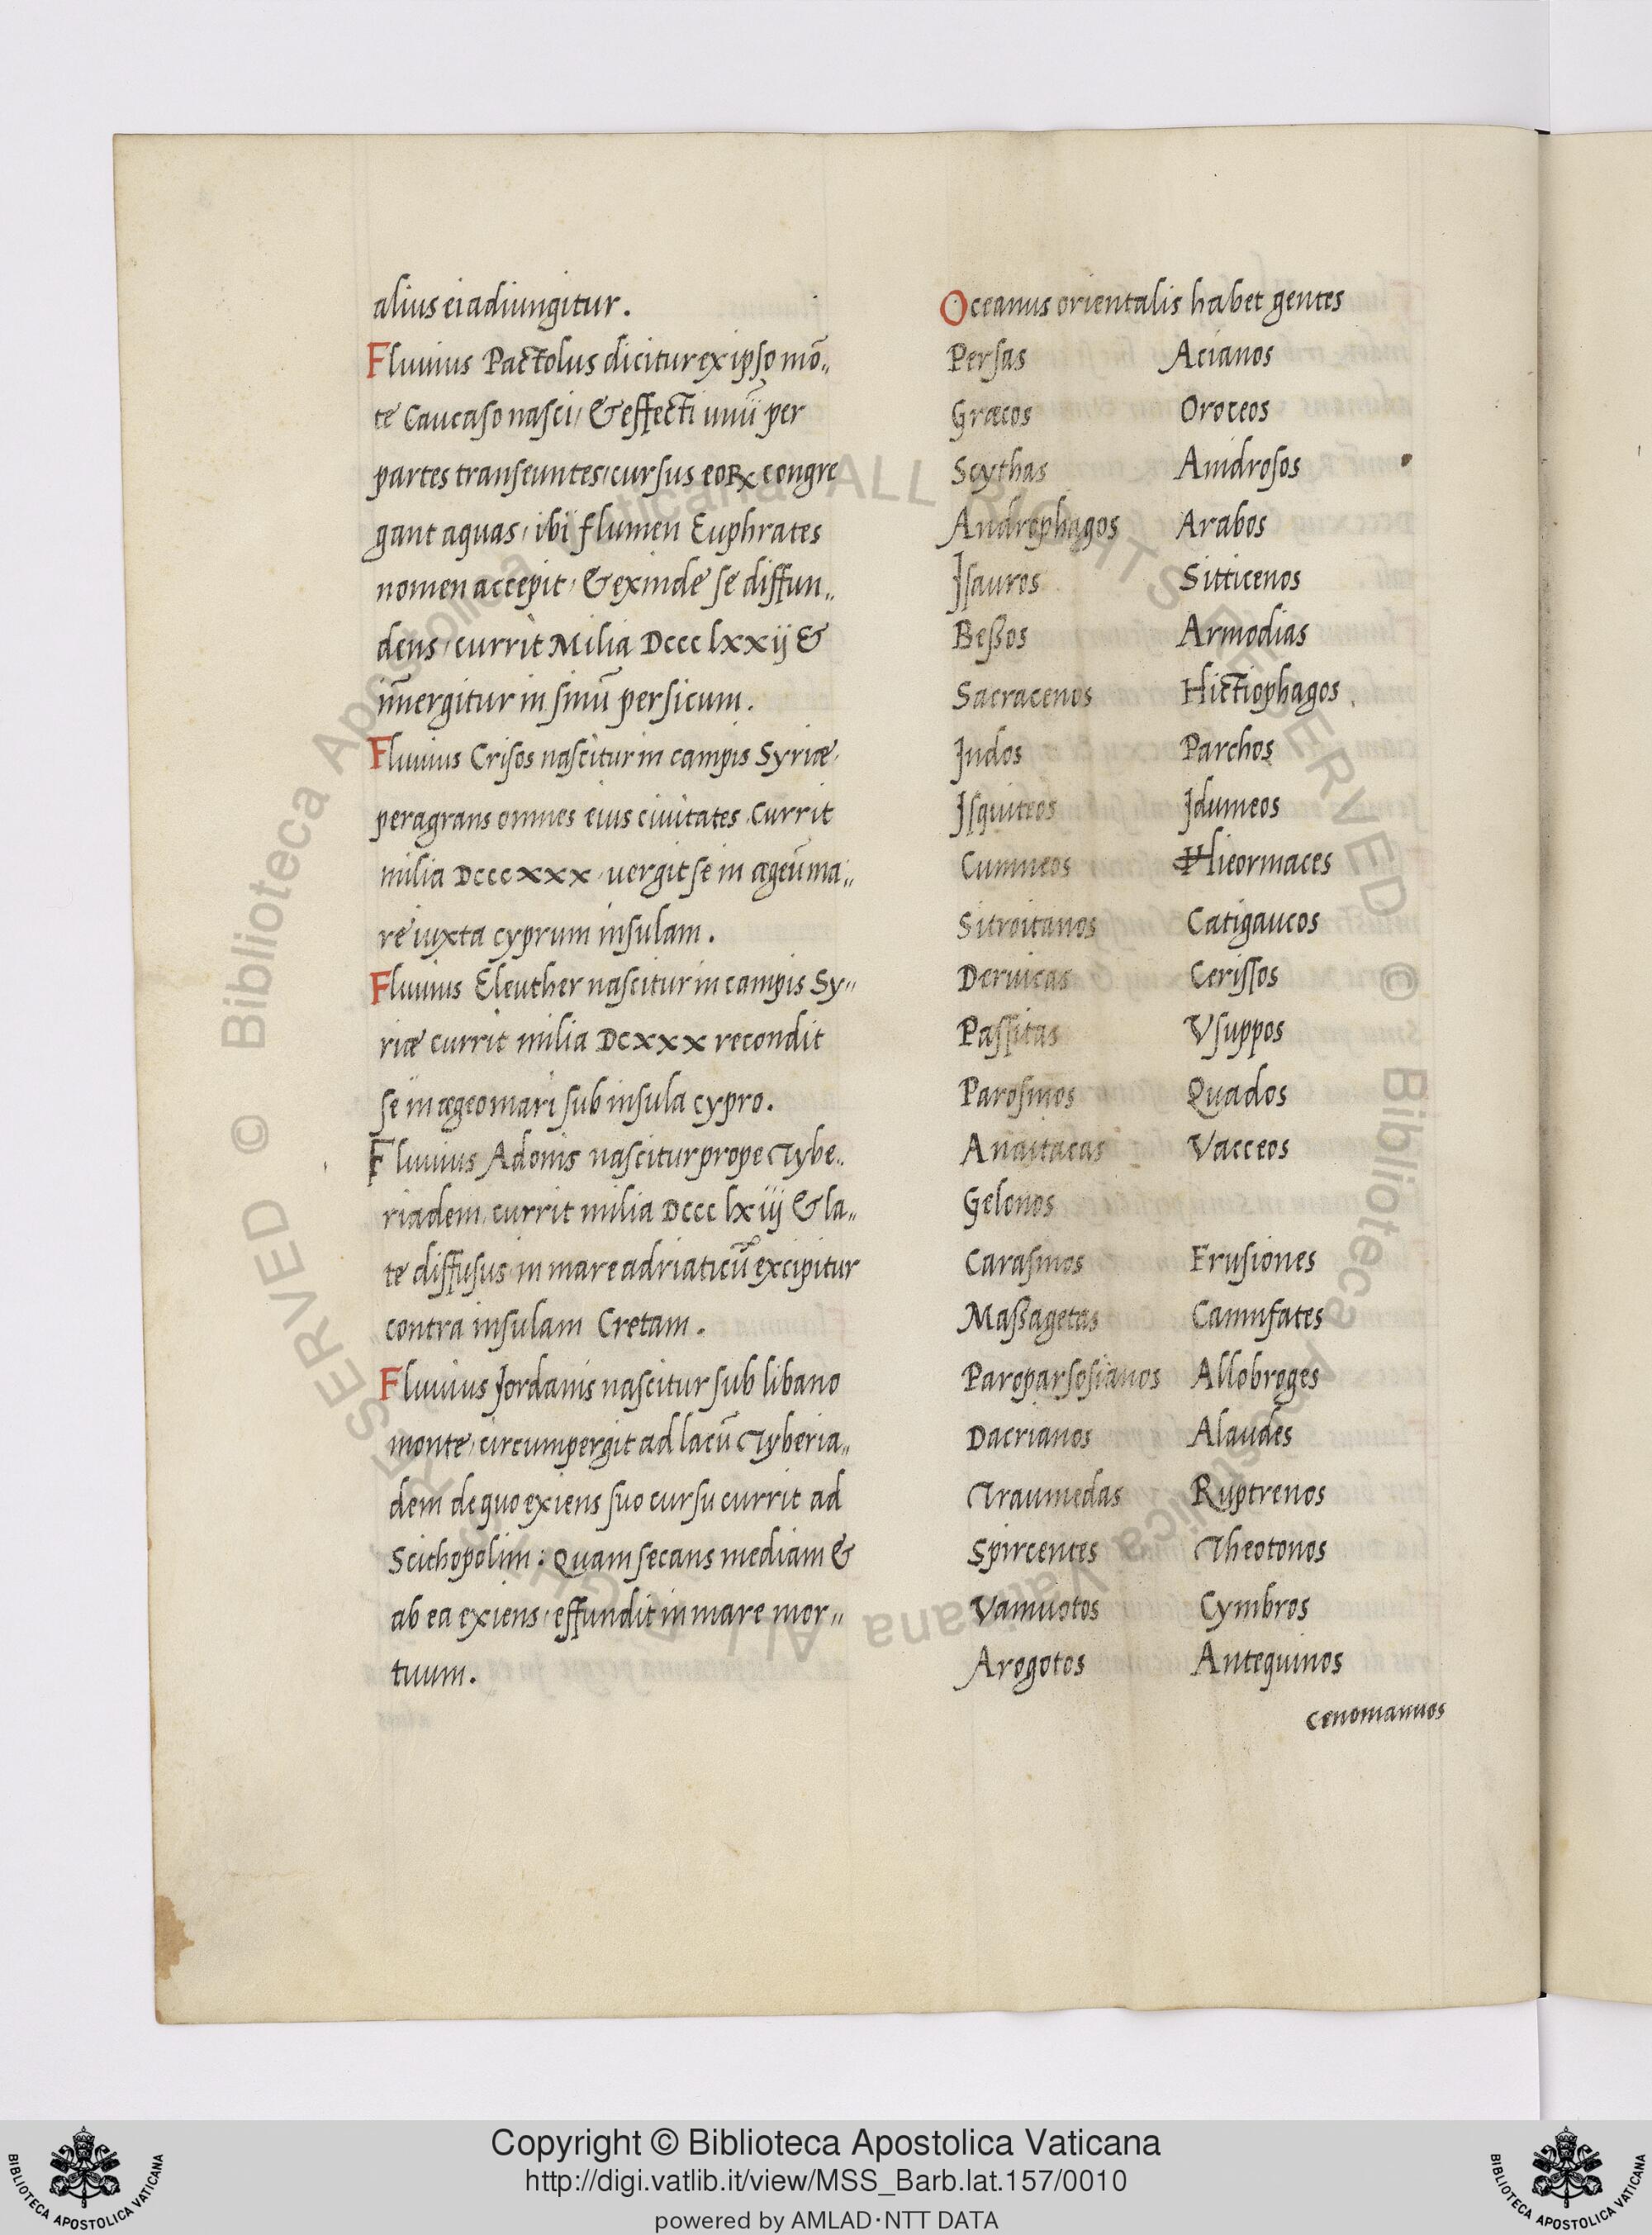 alius ei adiungitur.
Fluuius Pactolus dicitur ex ipso mō„
te Caucaso nasci, & effecti unū per
partes transeuntes, cursus eoꝝ congre
gant aquas, ibi flumen Euphrates
nomen accepit, & exinde se diffun„
dens, currit Milia Dccc lxxij &
im̄ergitur in sinū persicum.
Fluuius Crisos nascitur in campis Syriæ,
peragrans omnes eius ciuitates. Currit
milia Dcccxxx, uergit se in ægeū ma„
re iuxta cyprum insulam.
Fluuius Eleuther nascitur in campis Sy„
riæ currit milia Dcxxx recondit
se in ægeo mari sub insula cypro.
Fluuius Adonis nascitur prope Tybe„
riadem, currit milia Dccc lxiij & la„
te diffusus in mare adriaticū excipitur
contra insulam Cretam.
Fluuius Jordanis nascitur sub libano
monte, circumpergit ad lacū Tyberia„
dem de quo exiens suo cursu currit ad
Scithopolim: Quam secans mediam &
ab ea exiens, effundit in mare mor„
tuum.
Oceanus orientalis habet gentes
Persas Acianos
Græcos Oroceos
Scythas Androsos
Androphagos Arabos
Jsauros Sitticenos
Beßos Armodias
Sacracenos Hictiophagos.
Judos Parchos
Jsquiteos Jdumeos
Cumneos Hieormaces
Sitroitanos Catigaucos
Deruicas Cerissos
Passitas Vsuppos
Parosmos Quados
Anaitacas Vacceos
Gelonos
Carasmos Frusiones
Maßagetas Camnfates
Paroparsosianos Allobroges
Dacrianos Alaudes
Traumedas Ruptrenos
Spircentes Theotonos
Vamuotos Cymbros
Arogotos Antequinos
cenomannos
© Biblioteca Apostolica Vaticana ALL RIGHTS RESERVED © Biblioteca Apostolica Vaticana ALL RIGHTS RESERVED
Copyright © Biblioteca Apostolica Vaticana
http://digi.vatlib.it/view/MSS_Barb.lat.157/0010
powered by AMLAD·NTT DATA
BIBLIOTECA APOSTOLICA VATICANA
BIBLIOTECA APOSTOLICA VATICANA